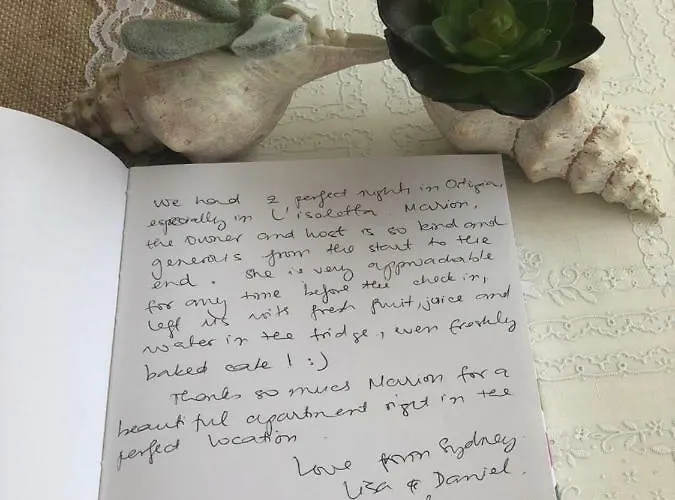 We had 2 perfect nights in Ortigia,
especially in L'isoletta. Marion,
the owner and host is so kind and
generous from the start to the
end. She is very approachable
for any time before the check in,
left us with fresh fruit, juice and
water in the fridge, even freshly
baked cake! :)
Thanks so much Marion for a
beautiful apartment right in the
perfect location.
Love from Sydney
Lisa & Daniel.